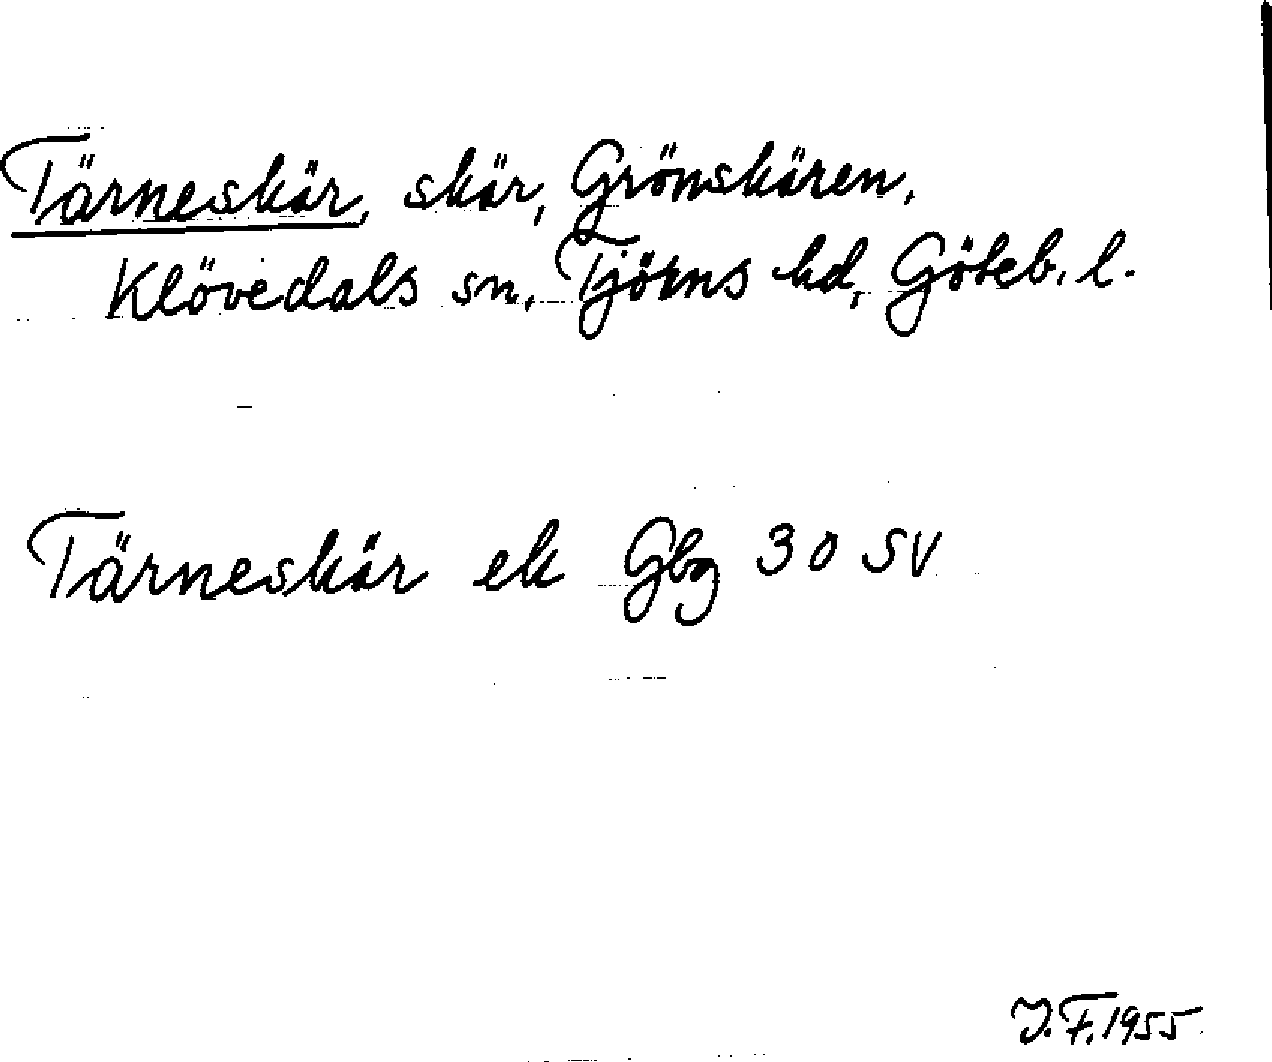 Tärneskär, skär, Grönskären,
Klövedals sn, Tjörns hd, Göteb. l.
Tärneskär ek Gbg 30 SV
J.F. 1955